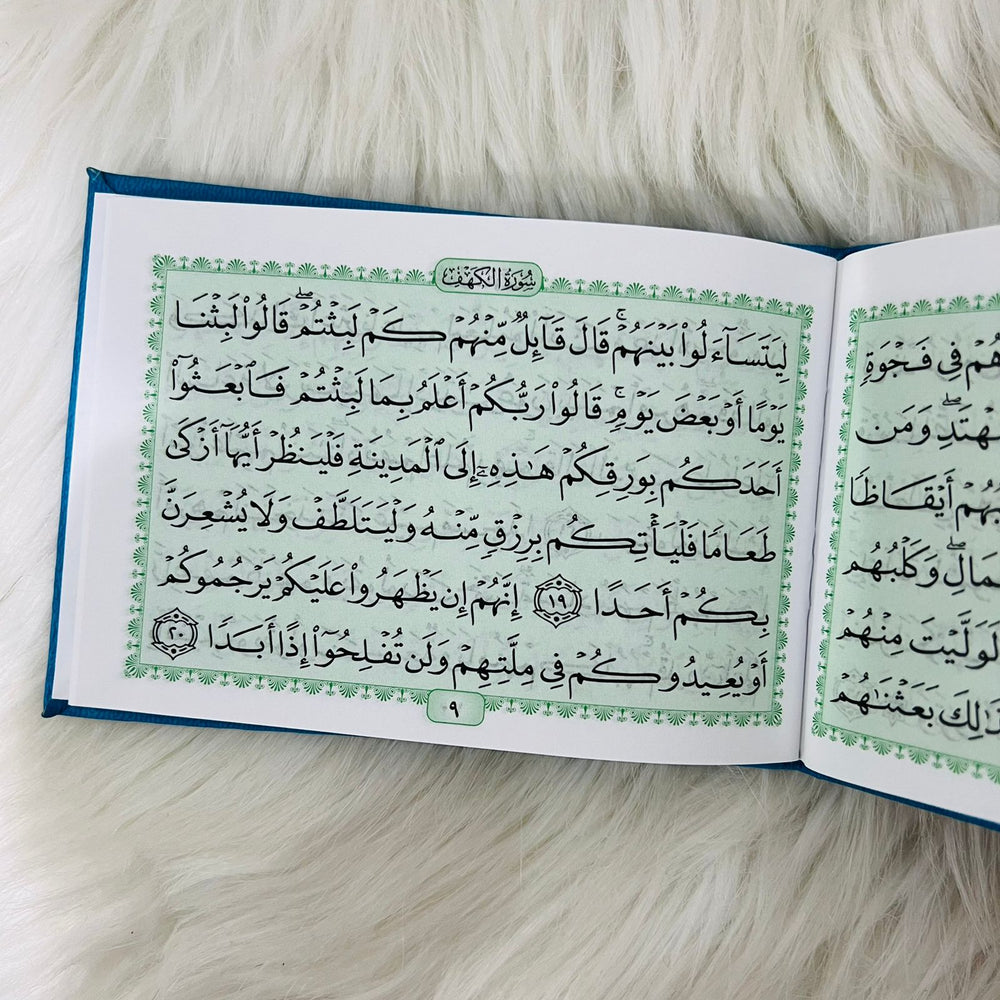 سُورَةُ الكَهْفِ
لِيَتَسَآءَلُوا۟ بَيْنَهُمْ ۚ قَالَ قَآئِلٌ مِّنْهُمْ كَمْ لَبِثْتُمْ ۖ قَالُوا۟ لَبِثْنَا
يَوْمًا أَوْ بَعْضَ يَوْمٍ ۚ قَالُوا۟ رَبُّكُمْ أَعْلَمُ بِمَا لَبِثْتُمْ فَٱبْعَثُوٓا۟
أَحَدَكُم بِوَرِقِكُمْ هَـٰذِهِۦٓ إِلَى ٱلْمَدِينَةِ فَلْيَنظُرْ أَيُّهَآ أَزْكَىٰ
طَعَامًا فَلْيَأْتِكُم بِرِزْقٍ مِّنْهُ وَلْيَتَلَطَّفْ وَلَا يُشْعِرَنَّ
بِكُمْ أَحَدًا ١٩ إِنَّهُمْ إِن يَظْهَرُوا۟ عَلَيْكُمْ يَرْجُمُوكُمْ
أَوْ يُعِيدُوكُمْ فِى مِلَّتِهِمْ وَلَن تُفْلِحُوٓا۟ إِذًا أَبَدًا ٢٠
٩
هُمْ فِى فَجْوَةٍ
وَمَن
أَيْقَاظًا
وَكَلْبُهُم
لَوَلَّيْتَ مِنْهُمْ
بَعَثْنَـٰهُمْ